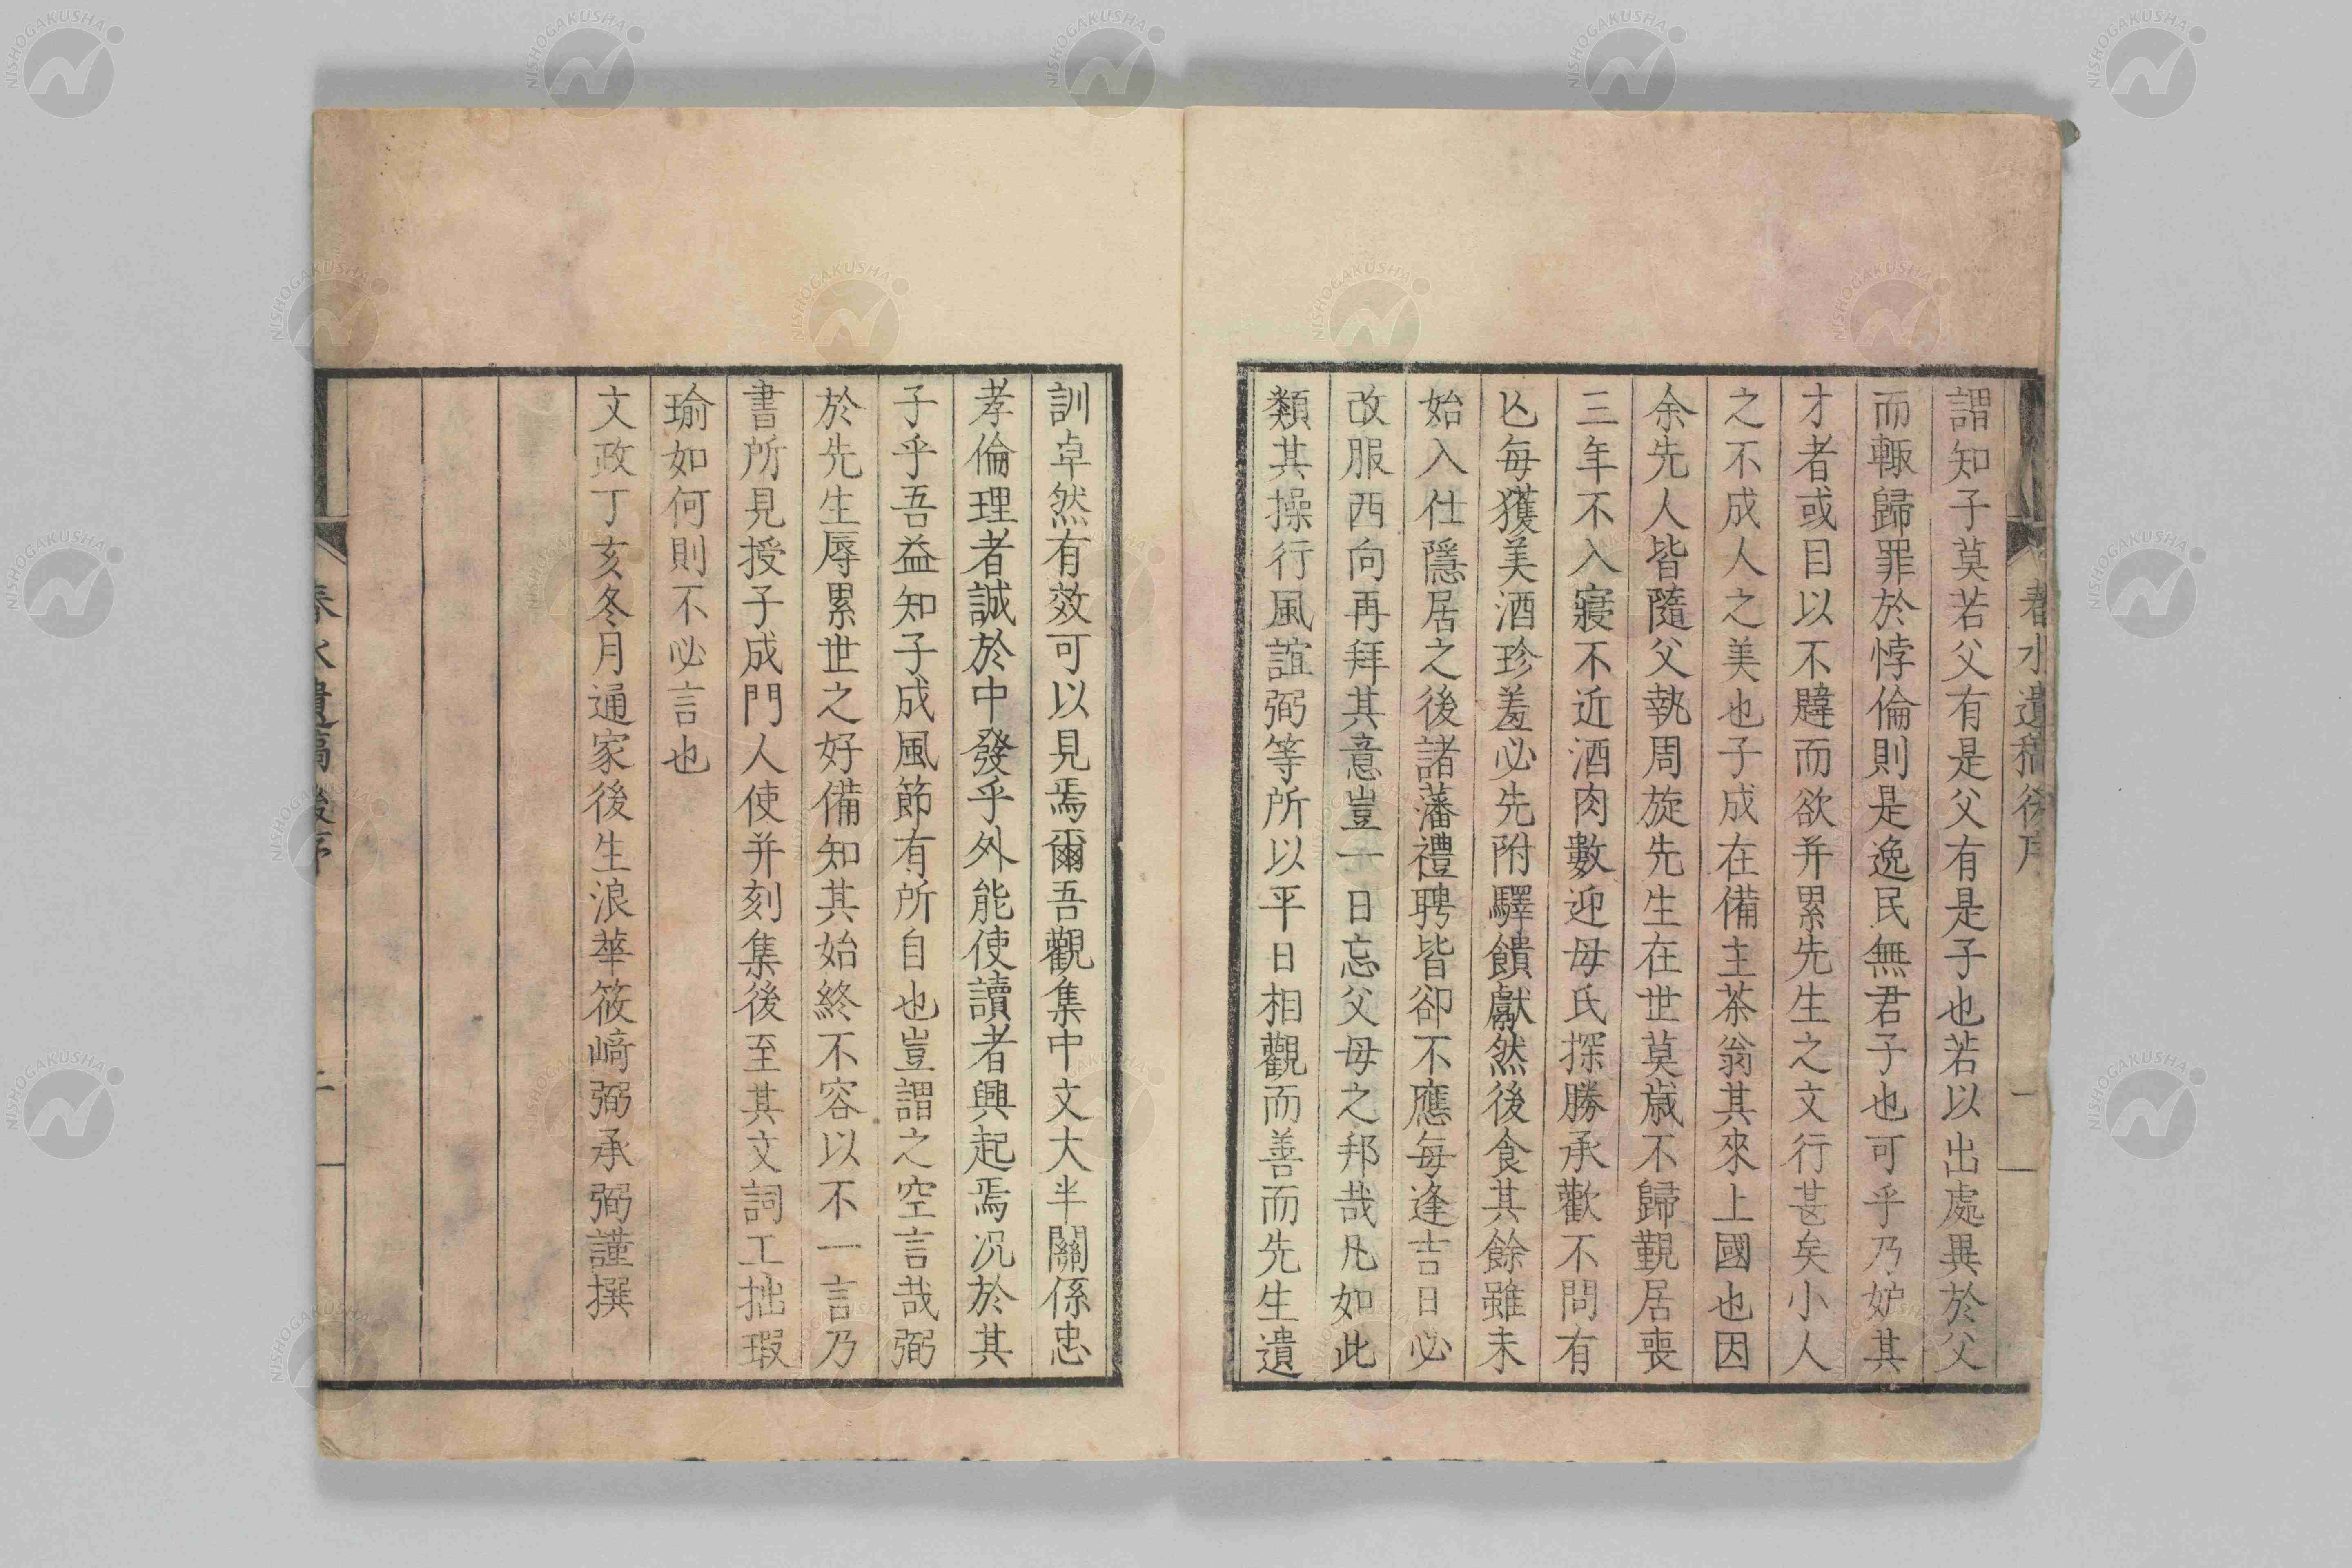 春水遺稿後序
二
謂知子莫若父有是父有是子也若以出處異於父
而輙歸罪於悖倫則是逸民無君子也可乎乃妒其
才者或目以不韙而欲并累先生之文行甚矣小人
之不成人之美也子成在備主茶翁其來上國也因
余先人皆隨父執周旋先生在世莫歲不歸覲居喪
三年不入寢不近酒肉數迎母氏探勝承歡不問有
亾每獲美酒珍羞必先附驛饋獻然後食其餘雖未
始入仕隱居之後諸藩禮聘皆卻不應每逢吉日必
改服西向再拜其意豈一日忘父母之邦哉凡如此
類其操行風誼弼等所以平日相觀而善而先生遺
訓卓然有效可以見焉爾吾觀集中文大半關係忠
孝倫理者誠於中發乎外能使讀者興起焉况於其
子乎吾益知子成風節有所自也豈謂之空言哉弼
於先生辱累世之好備知其始終不容以不一言乃
書所見授子成門人使并刻集後至其文詞工拙瑕
瑜如何則不必言也
文政丁亥冬月通家後生浪華筱崎弼承弼謹撰
春水遺稿後序
NISHOGAKUSHA
NISHOGAKUSHA
NISHOGAKUSHA
NISHOGAKUSHA
NISHOGAKUSHA
NISHOGAKUSHA
NISHOGAKUSHA
NISHOGAKUSHA
NISHOGAKUSHA
NISHOGAKUSHA
NISHOGAKUSHA
NISHOGAKUSHA
NISHOGAKUSHA